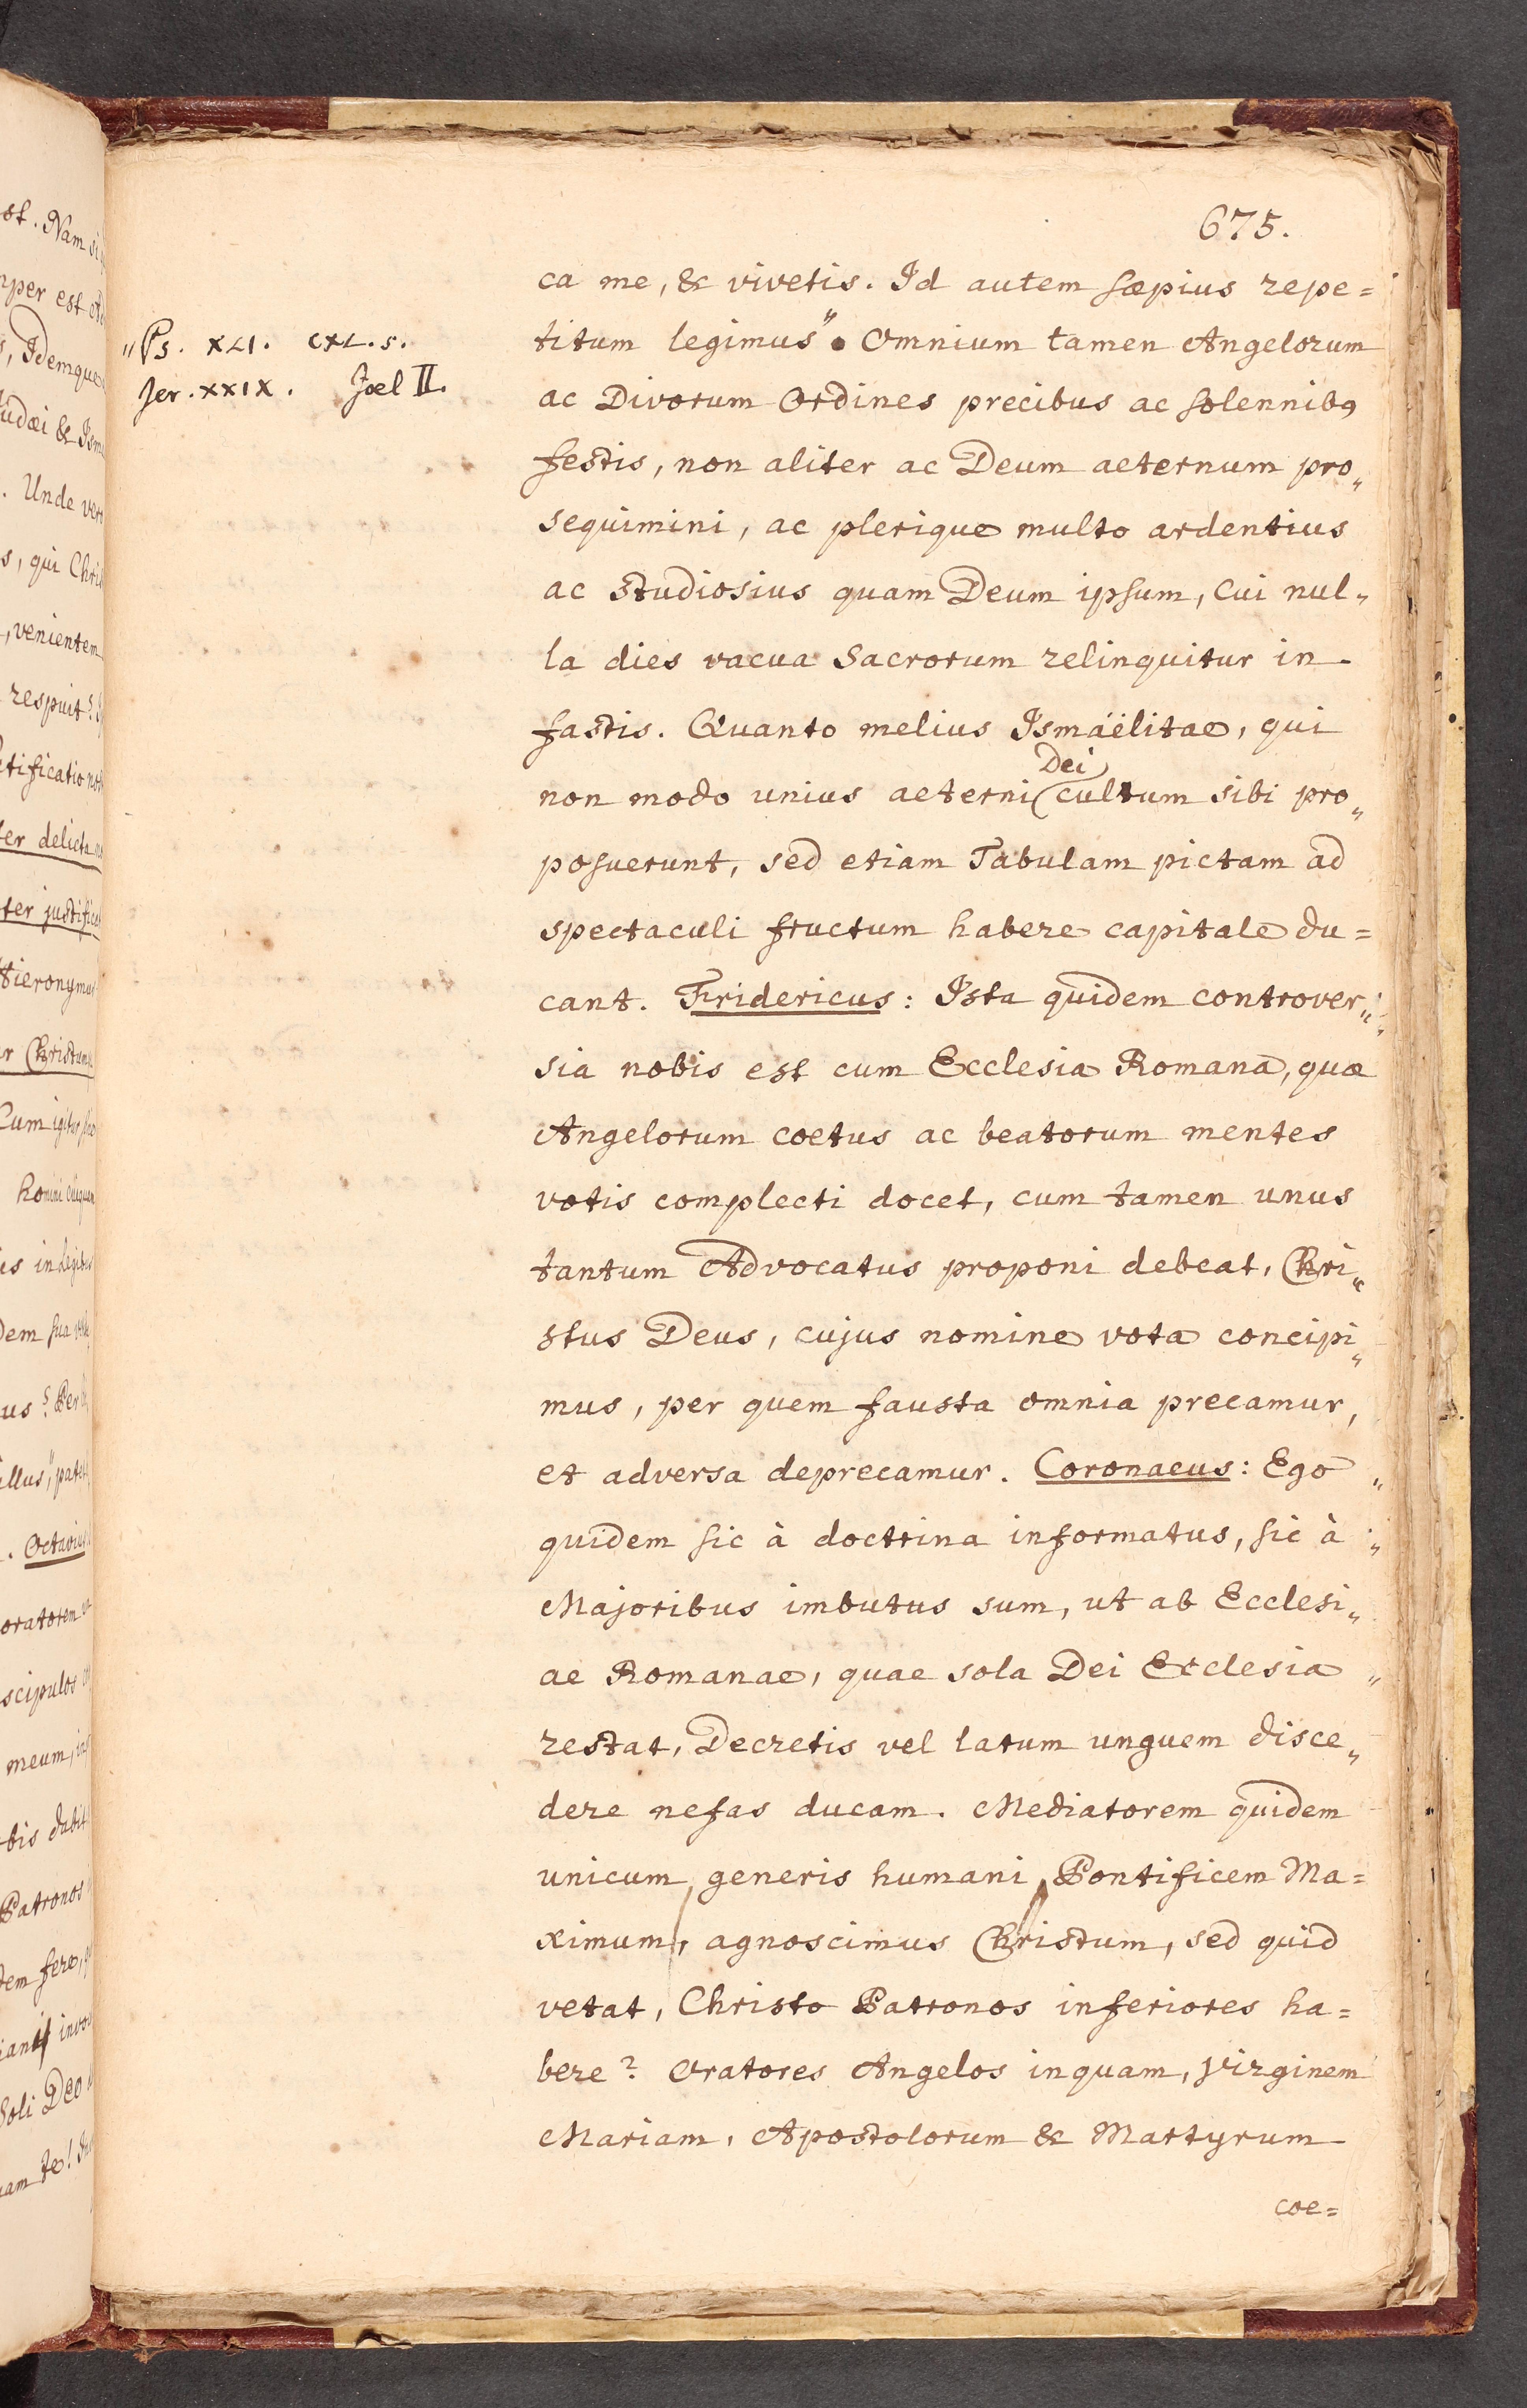 675.
ca me, & vivetis. Id autem sæpius repe=
titum legimus" . Omnium tamen Angelorum
"Ps. XLI. CXL. s.
Jer. XXIX. Joel II.
ac Divorum Ordines precibus ac solennibꝯ
festis, non aliter ac Deum aeternum pro„
sequimini, ac plerique multo ardentius
ac studiosius quam Deum ipsum, Cui nul„
la dies vacua Sacrorum relinquitur in
fastis. Quanto melius Ismaëlitae, qui
Dei
non modo unius aeterni cultum sibi pro„
posuerunt, sed etiam Tabulam pictam ad
spectaculi fructum habere capitale du=
cant. Fridericus: Ista quidem controver„
sia nobis est cum Ecclesia Romana, quæ
Angelorum coetus ac beatorum mentes
votis complecti docet, cum tamen unus
tantum Advocatus proponi debeat, Chri„
stus Deus, cujus nomine vota concipi„
mus, per quem fausta omnia precamur,
et adversa deprecamur. Coronaeus: Ego „
quidem sic à doctrina informatus, sic à „
Majoribus imbutus sum, ut ab Ecclesi„
ae Romanae, quae sola Dei Ecclesia „
restat, Decretis vel latum unguem disce„
dere nefas ducam. Mediatorem quidem
unicum generis humani, Pontificem Ma=
ximum, agnoscimus Christum, sed quid
vetat, Christo Patronos inferiores ha=
bere? Oratores Angelos inquam, Virginem
Mariam, Apostolorum & Martyrum
coe=